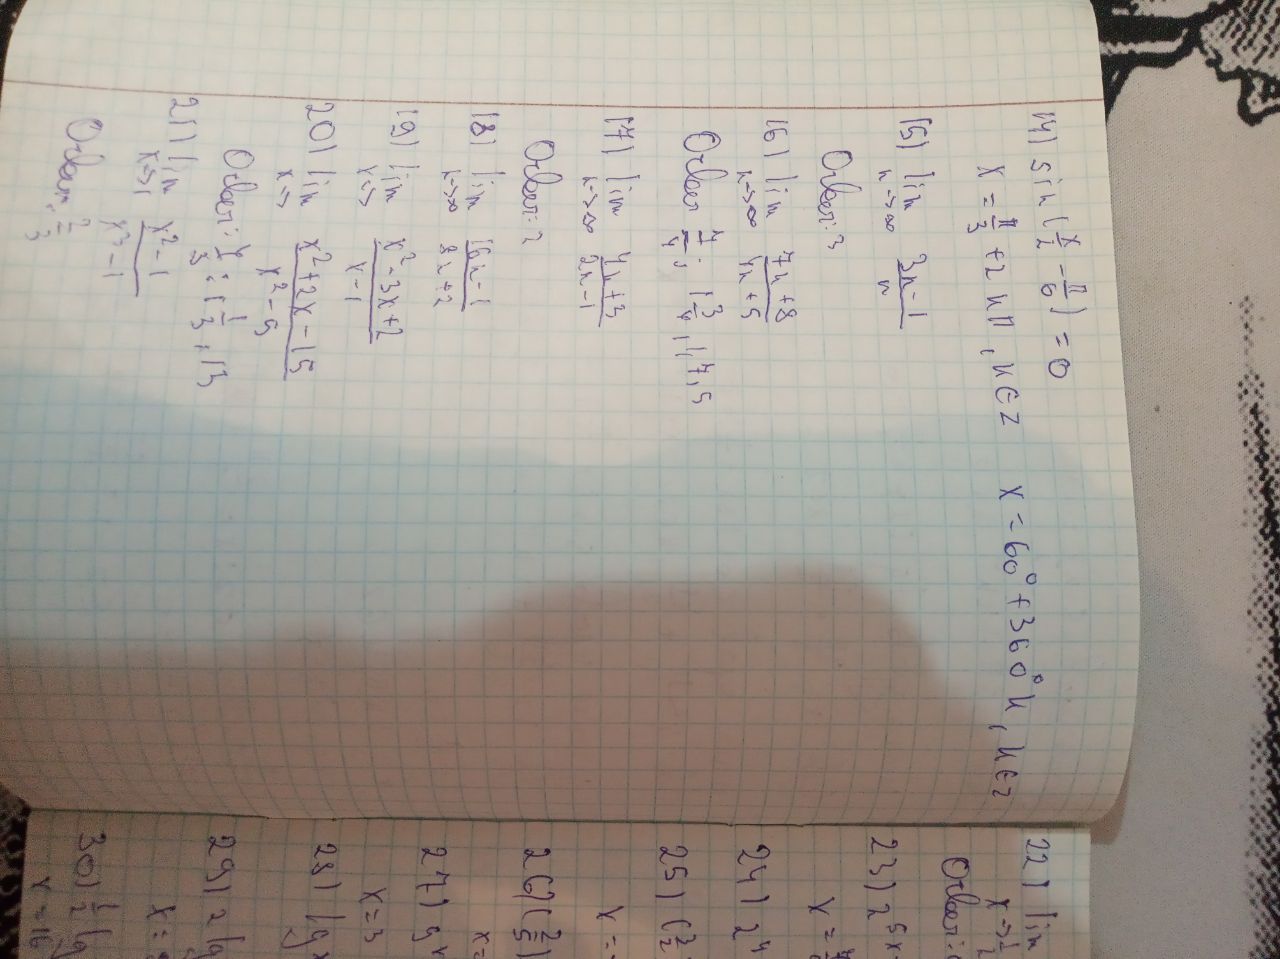 14) sin(x/2 - π/6) = 0
x = π/3 + 2kπ, k∈Z x = 60° + 360°k, k∈Z
15) lim n->∞ (3n-1)/n
Ответ: 3
16) lim n->∞ (7n+8)/(4n+5)
Ответ 7/4; 1 3/4, 1,7,5
17) lim n->∞ (4n+3)/(2n-1)
Ответ: 2
18) lim n->∞ (16n-1)/(8n+2)
19) lim x-> (x²-3x+2)/(x-1)
20) lim x-> (x²+2x-15)/(x²-9)
Ответ: 4/3; 1 1/3, 13
21) lim x->1 (x²-1)/(x³-1)
Ответ: 2/3
22) lim
x->1/2
Ответ:
23) 2^5x
x =
24) 2^4
25) (3/2
x = -
26) (2/5)
x=
27) 9^x
x=3
28) lg x
29) 2 lg
x =
30) 1/2 lg
x = 16